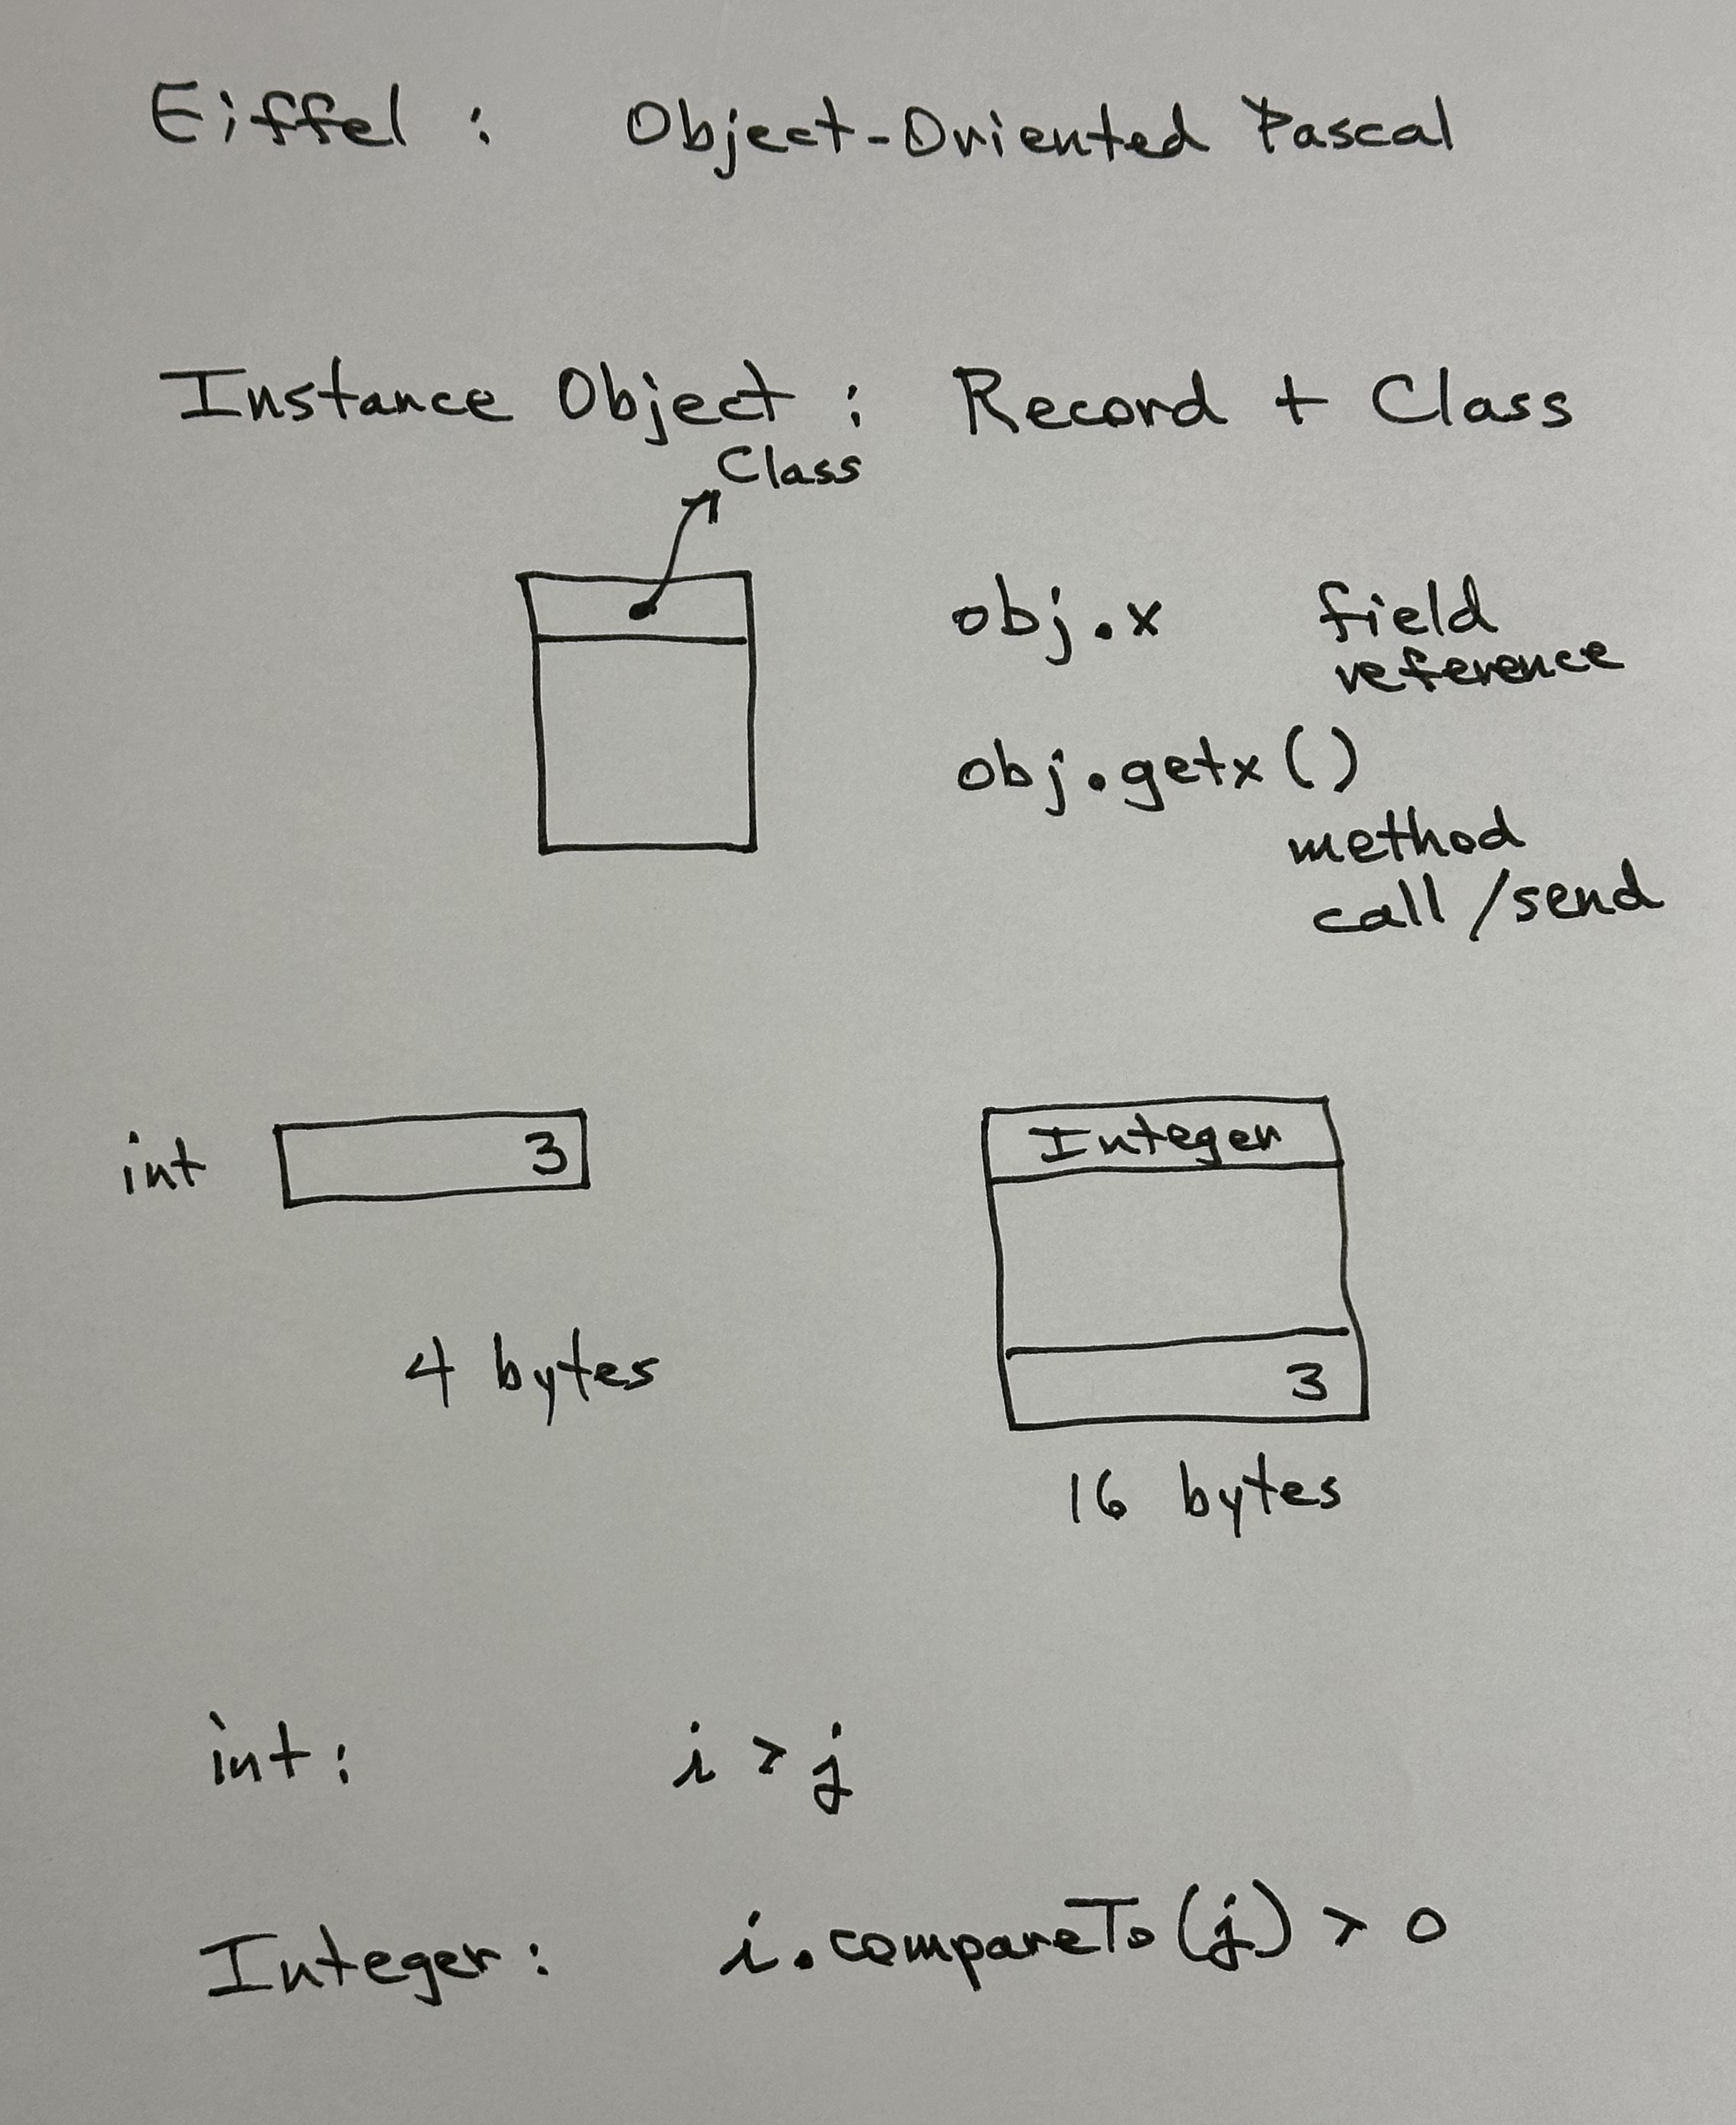 Eiffel : Object-Oriented Pascal
Instance Object : Record + Class
Class
obj.x field
reference
obj.getx()
method
call/send
int 3
4 bytes
Integer
3
16 bytes
int: i > j
Integer: i.compareTo(j) > 0